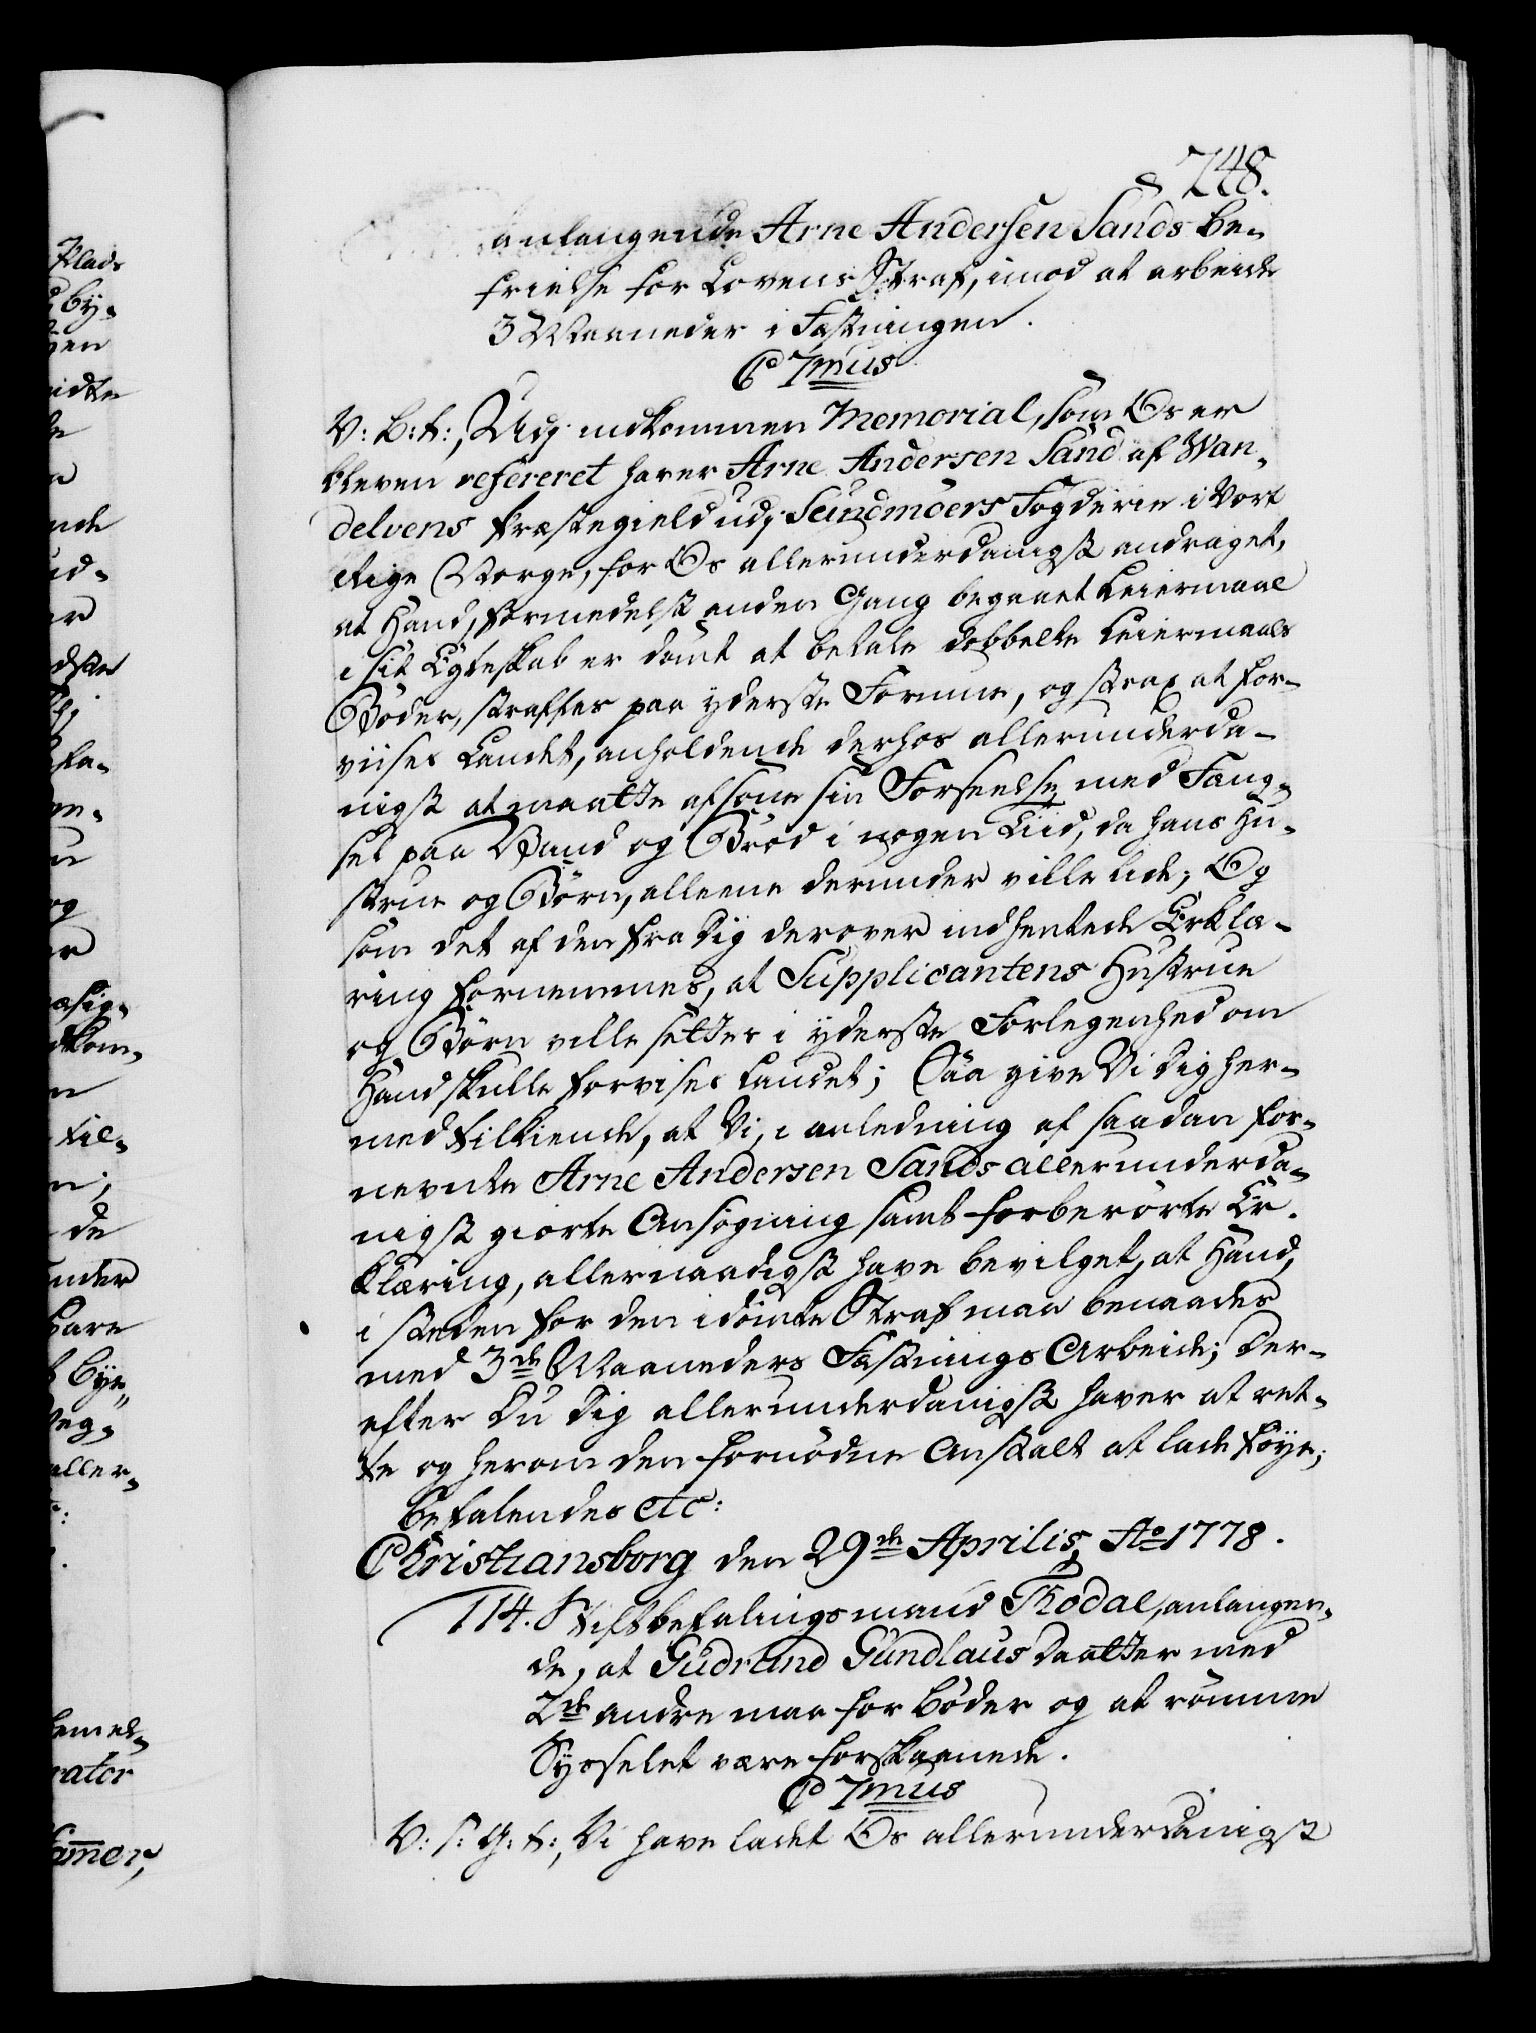 748.
anlangende Arne Andersen Sands be-
frielse for Lovens Straf, imod at arbeide
3 Maaneder i Fæstningen.
C 7mus
V: B: t:, Udj indkommen Memorial, som Os er
bleven refereret haver Arne Andersen Sand af Wan-
delvens Præstegield udj Sundmöers Fogderie i Vort
Rige Norge, for Os allerunderdanigst andraget,
at Hand, formedelst anden Gang begaaet Leiermaal
i sit Egteskab er dömt at betale dobbelte Leiermaals
Böder, straffes paa yderste Formue, og strax at for-
viises Landet, anholdende derhos allerunderda-
nigst at maatte afsone sin Forseelse med Fæng-
sel paa Vand og Bröd i nogen Tiid, da hans Hu-
strue og Börn, alleene derunder ville lide; Og
som det af den fra Dig derover indhentede Erklæ-
ring fornemmes, at Supplicantens Hustrue
og Börn ville settes i yderste Forlegenhed om
Hand skulle forvises Landet; Saa give Vi Dig her-
med tilkiende, at Vi, i anledning af saadan for-
nevnte Arne Andersen Sands allerunderda-
nigst giorte Ansögning samt forberörte Er-
klæring, allernaadigst have bevilget, at Hand,
i steden for den idömte Straf maa benaades
med 3de Maaneders Fæstnings Arbeide; Der-
efter Du Dig allerunderdanigst haver at ret-
te og herom den fornödne Anstalt at lade föye;
Befalendes etc:
Christiansborg den 29de Aprilis, Ao 1778.
114. Stiftbefalingsmand Thodal, anlangen-
de, at Gudrund Gundlaus Daatter med
2de andre maa for Böder og at römme
Sysselet være forskaanede.
C 7mus
V: s: G: t:, Vi have ladet Os allerunderdanigst